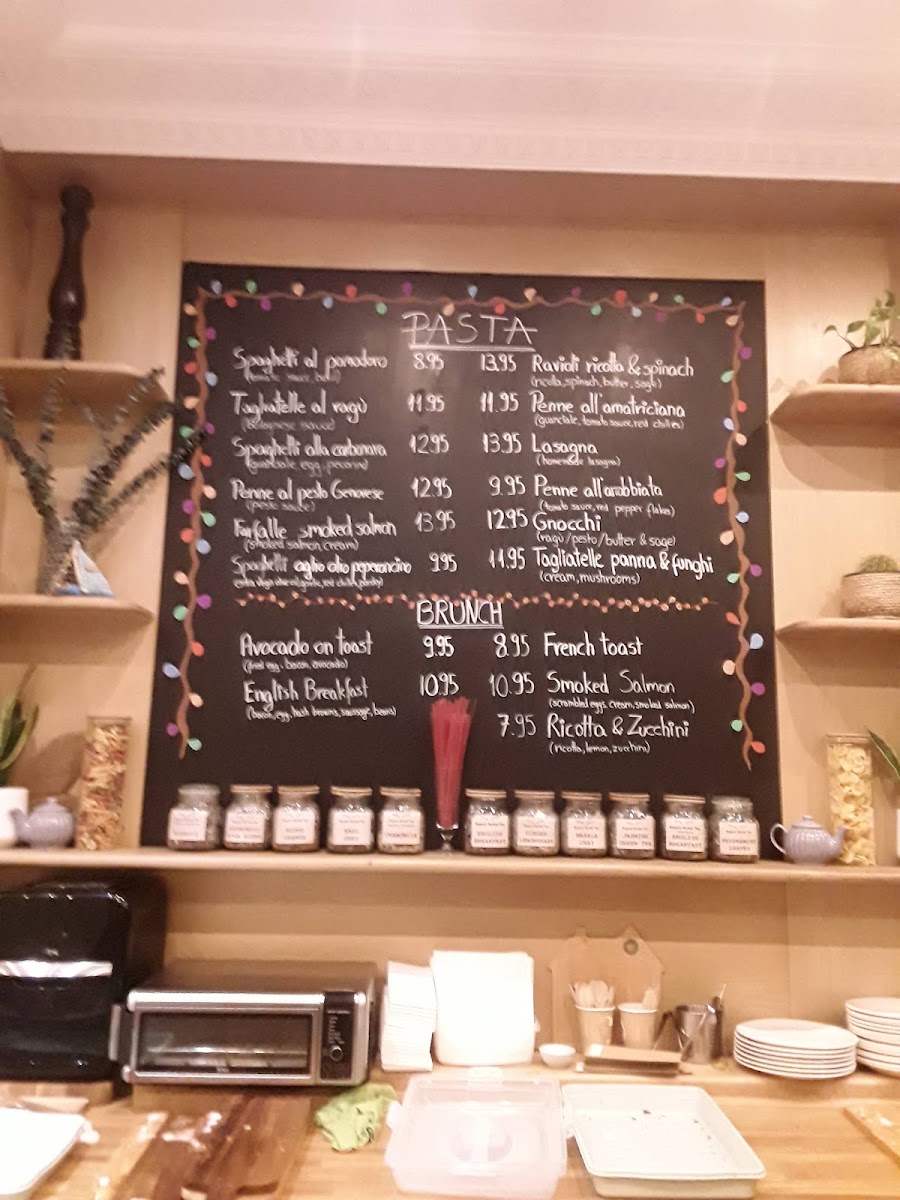 PASTA
Spaghetti al pomodoro 8.95
(tomato sauce, basil)
Tagliatelle al ragù 11.95
(bolognese sauce)
Spaghetti alla carbonara 12.95
(guanciale, egg, pecorino)
Penne al pesto Genovese 12.95
(pesto sauce)
Farfalle smoked salmon 13.95
(smoked salmon, cream)
Spaghetti aglio olio peperoncino 9.95
13.95 Ravioli ricotta & spinach
(ricotta, spinach, butter, sage)
11.95 Penne all'amatriciana
(guanciale, tomato sauce, red chillies)
13.95 Lasagna
(homemade lasagna)
9.95 Penne all'arrabbiata
(tomato sauce, red pepper flakes)
12.95 Gnocchi
(ragù/pesto/butter & sage)
11.95 Tagliatelle panna & funghi
(cream, mushrooms)
BRUNCH
Avocado on toast 9.95
(fried egg, bacon, avocado)
English Breakfast 10.95
(bacon, egg, hash browns, sausage, beans)
8.95 French toast
10.95 Smoked Salmon
(scrambled eggs, cream, smoked salmon)
7.95 Ricotta & Zucchini
(ricotta, lemon, zucchini)
ENGLISH
BREAKFAST
MASALA
CHAI
JASMINE
GREEN TEA
ENGLISH
BREAKFAST
PEPPERMINT
LEAVES